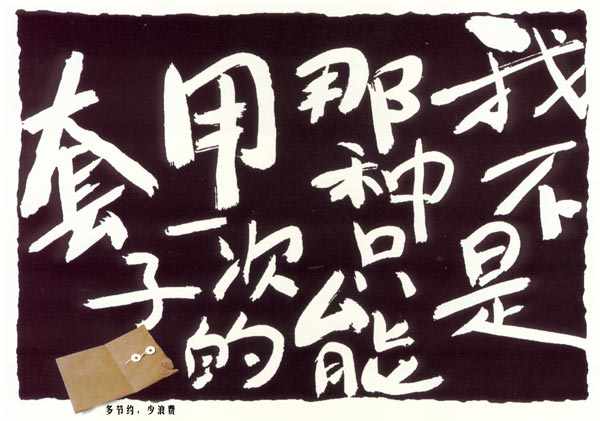 我不是
那种只能
用一次的
套子
多节约，少浪费